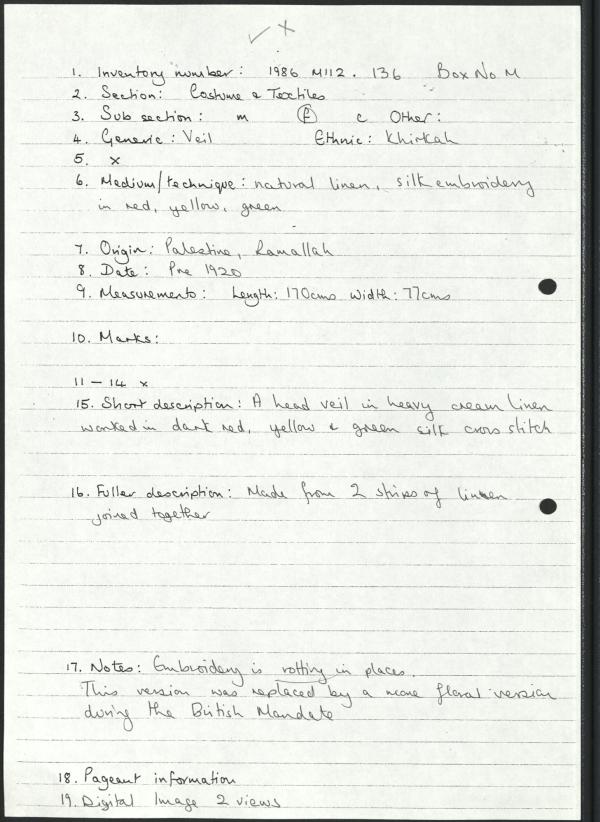 ✓ x
1. Inventory number: 1986 M112. 136 Box No M
2. Section: Costume & Textiles
3. Sub section: m (f) c Other:
4. Generic: Veil Ethnic: Khirkah
5. x
6. Medium/technique: natural linen, silk embroidery
in red, yellow, green
7. Origin: Palestine, Ramallah
8. Date: Pre 1920
9. Measurements: Length: 170cms Width: 77cms
10. Marks:
11 – 14 x
15. Short description: A head veil in heavy cream linen
worked in dark red, yellow & green silk cross stitch
16. Fuller description: Made from 2 strips of linen
joined together
17. Notes: Embroidery is rotting in places.
This version was replaced by a more floral version
during the British Mandate
18. Pageant information
19. Digital Image 2 views